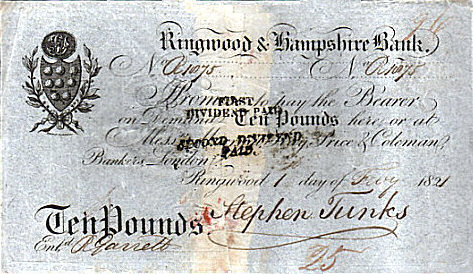 Ringwood & Hampshire Bank.
No No
I Promise to pay the Bearer
FIRST
DIVIDEND PAID
on Demand Ten Pounds here or at
Price & Coleman,
SECOND DIVIDEND
PAID.
Bankers, London.
Ringwood 1 day of Feby 1821
Ten Pounds Stephen Tunks
Entd. R Garrett
25